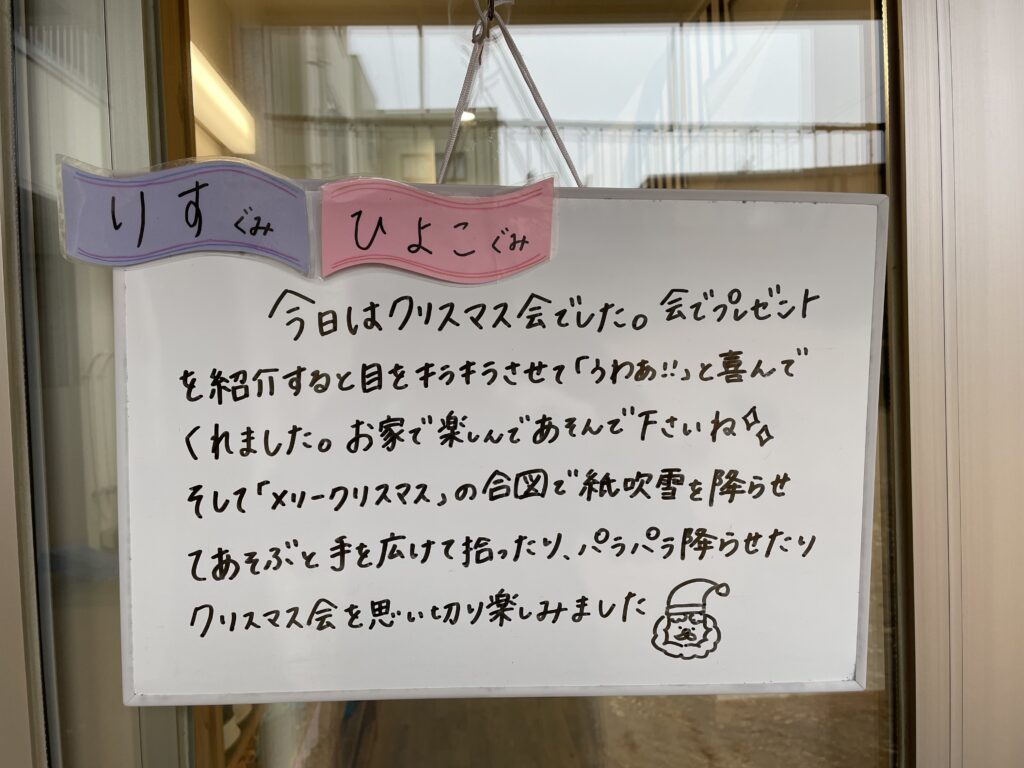 りす ぐみ
ひよこ ぐみ
今日はクリスマス会でした。会でプレゼント
を紹介すると目をキラキラさせて「うわぁ!!」と喜んで
くれました。お家で楽しんであそんで下さいね
そして「メリークリスマス」の合図で紙吹雪を降らせ
てあそぶと手を広げて拾ったり、パラパラ降らせたり
クリスマス会を思い切り楽しみました